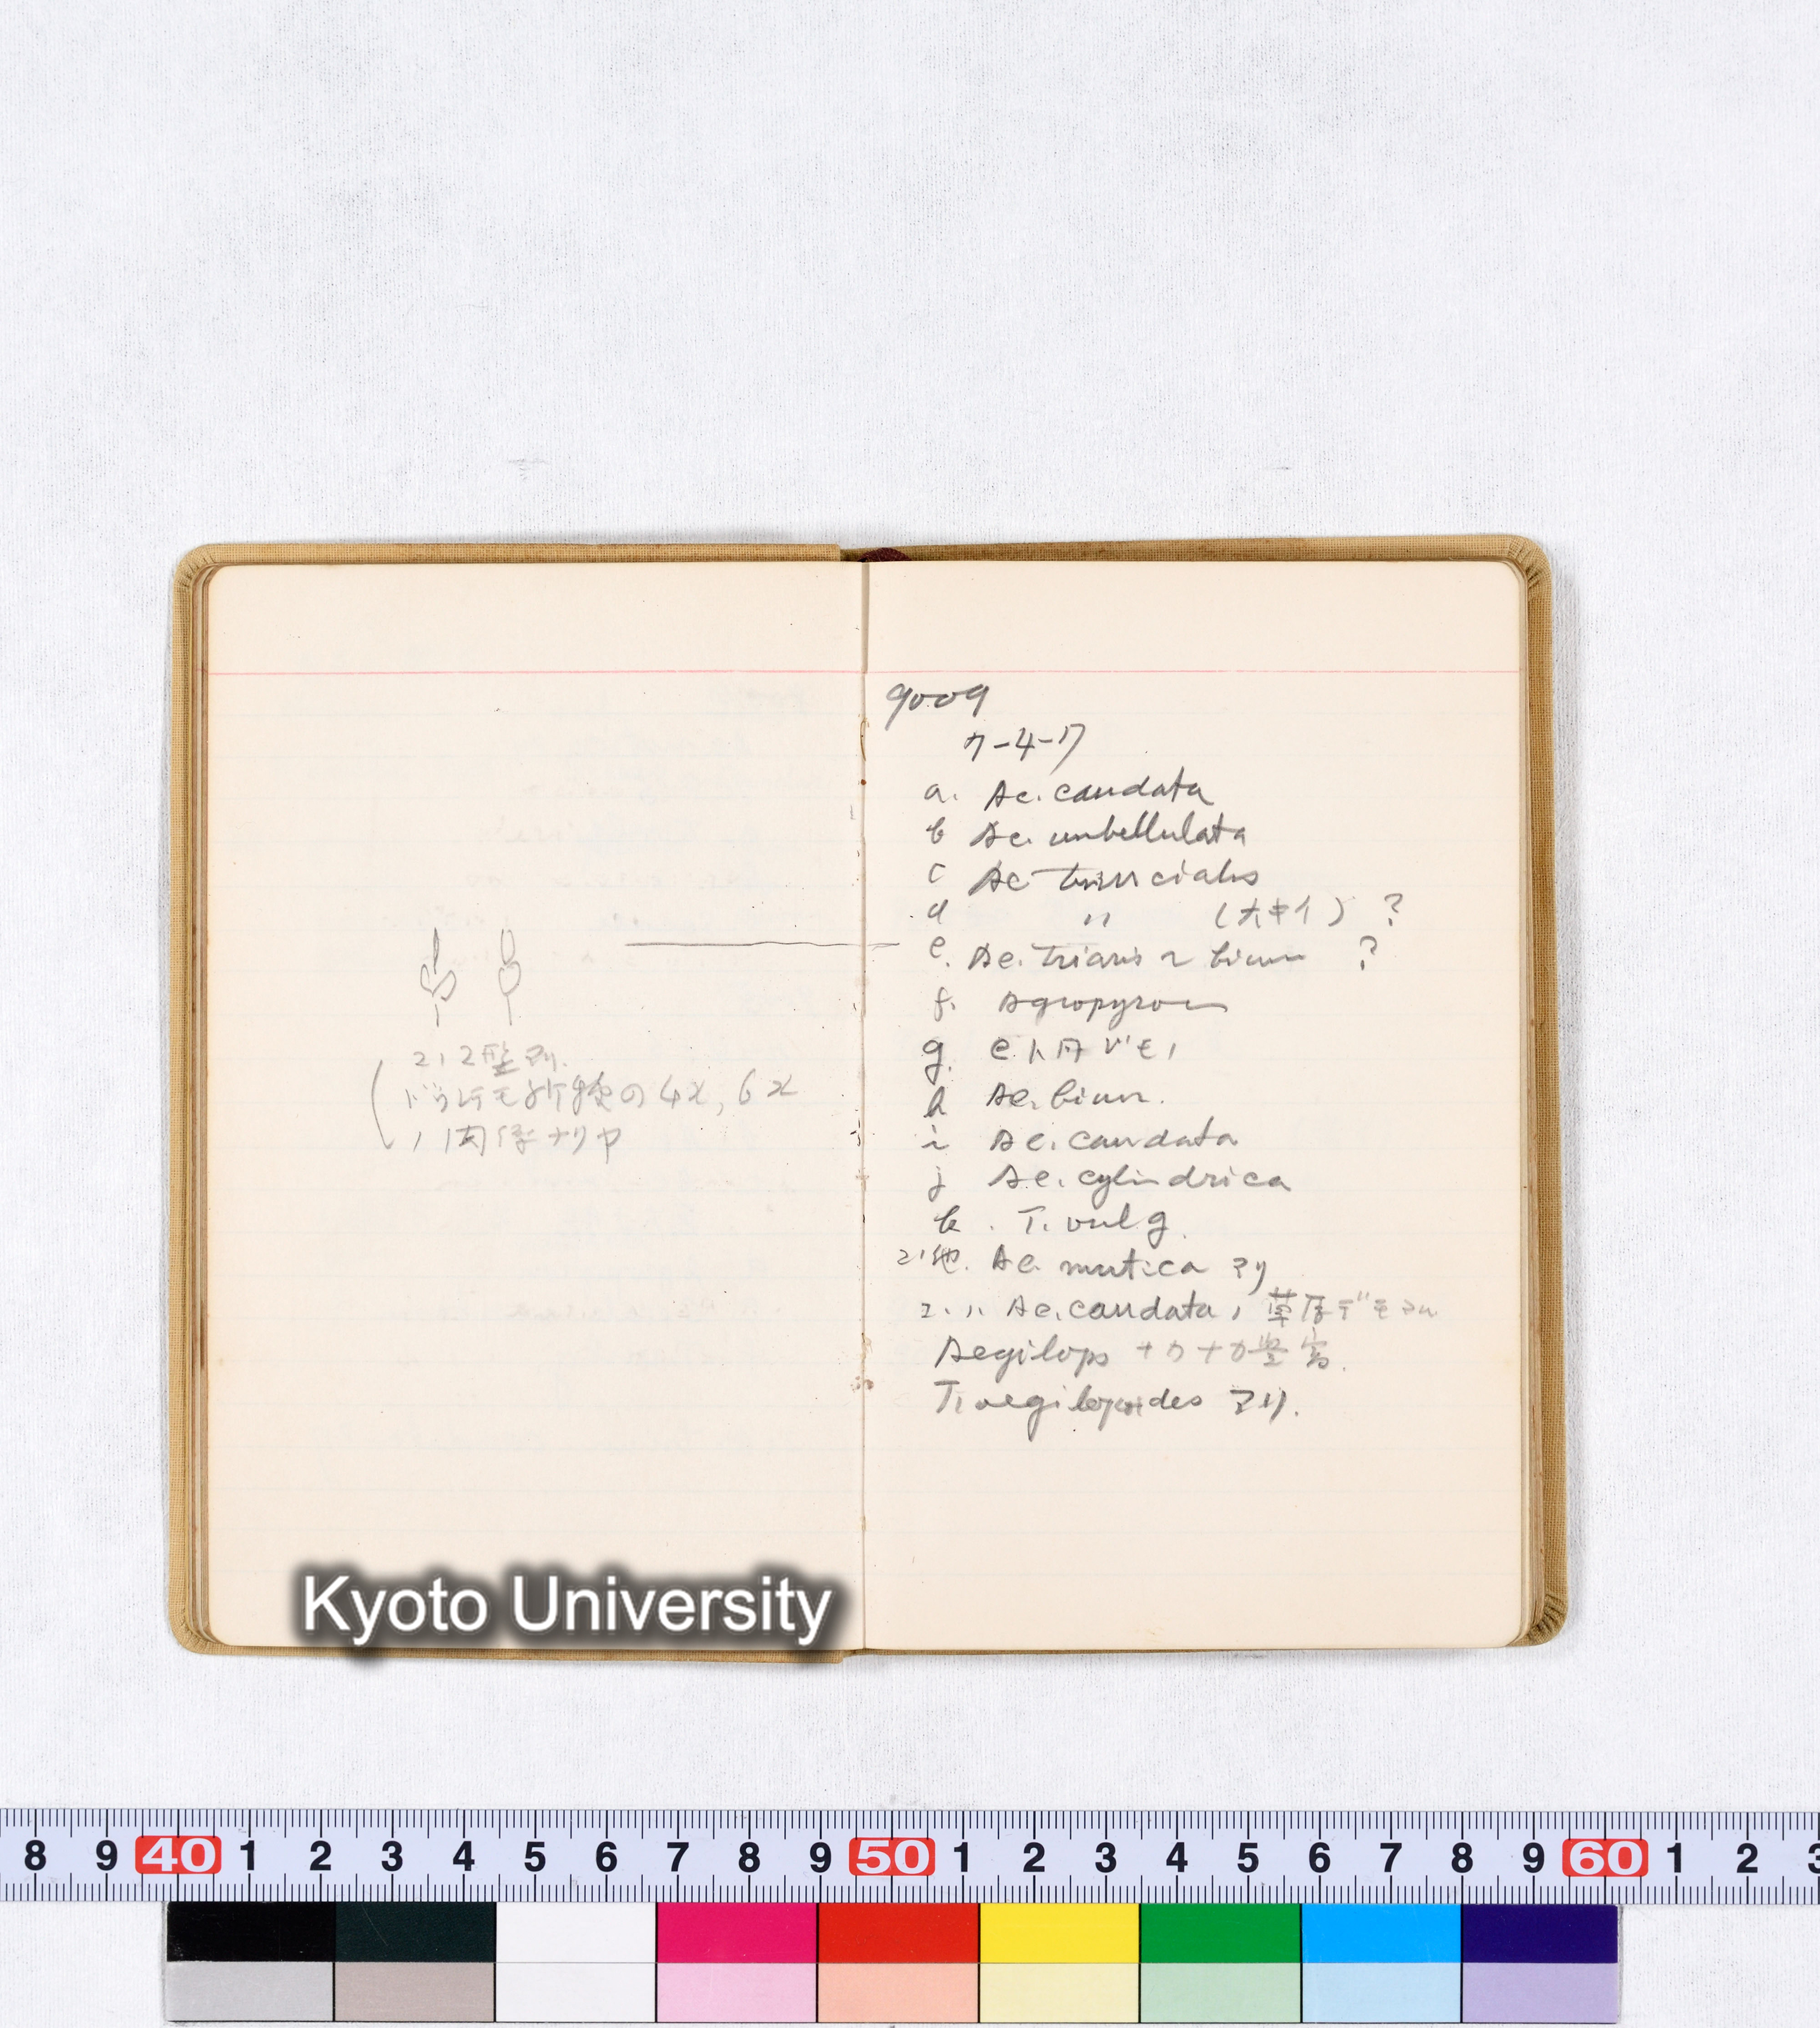 コノ2型アリ.
ドウシテモ祈後の4x, 6x
ノ関係ナリヤ
9009
7-4-17
a. Ae. caudata
b Ae. umbellulata
c Ae triuncialis
d 〃 (大キイ) ?
e. Ae. triaris ~ biun ?
f. Agropyron
g. eト同ジモノ
h Ae. biun.
i Ae. caudata
j Ae. cylindrica
k. T. vulg.
コノ他. Ae. mutica アリ
コ. 〃 Ae. caudata, 草原デモアル
Aegilops ナカナカ豊富.
T. aegilopoides アリ.
Kyoto University
8 9 40 1 2 3 4 5 6 7 8 9 50 1 2 3 4 5 6 7 8 9 60 1 2 3